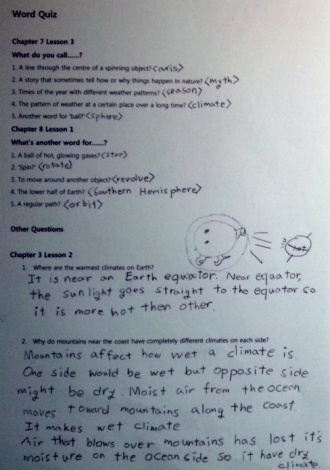 Word Quiz
Chapter 7 Lesson 3
What do you call......?
1. A line through the centre of a spinning object? <axis>
2. A story that sometimes tell how or why things happen in nature? <myth>
3. Times of the year with different weather patterns? <season>
4. The pattern of weather at a certain place over a long time? <climate>
5. Another word for 'ball'? <sphere>
Chapter 8 Lesson 1
What's another word for......?
1. A ball of hot, glowing gases? <star>
2. 'Spin'? <rotate>
3. To move around another object? <revolve>
4. The lower half of Earth? <Southern Hemisphere>
5. A regular path? <orbit>
Other Questions
Chapter 3 Lesson 2
1. Where are the warmest climates on Earth?
It is near an Earth equator. Near equator,
the sun light goes straight to the equator so
it is more hot then other.
2. Why do mountains near the coast have completely different climates on each side?
Mountains affect how wet a climate is
One side would be wet but opposite side
might be dry. Moist air from the ocean
moves toward mountains along the coast.
It makes wet climate
Air that blows over mountains has lost it's
moisture on the ocean side so it have dry
climate